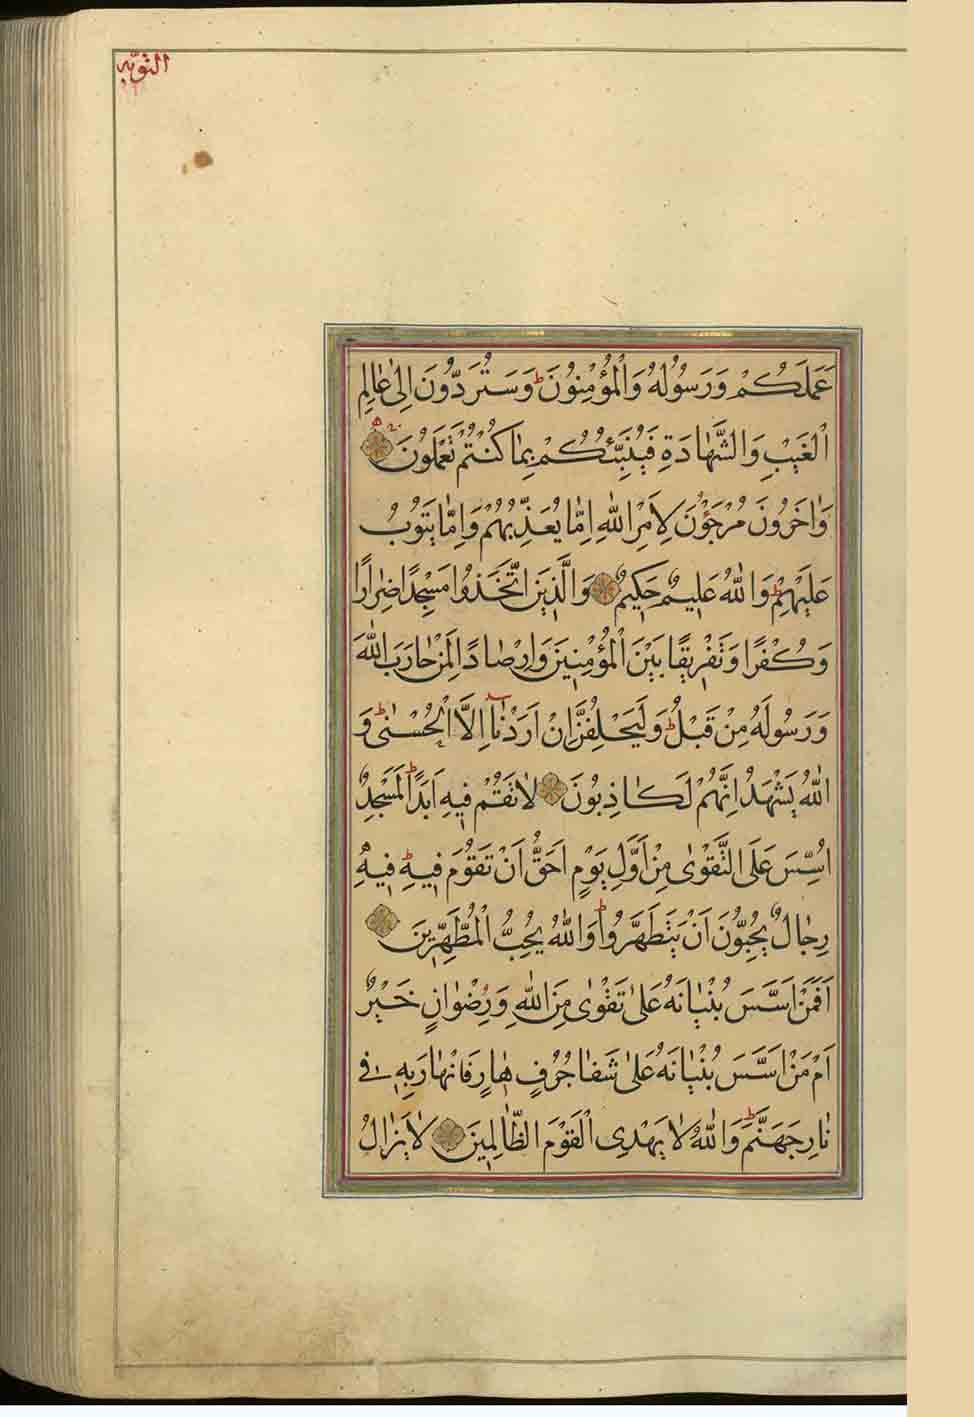 التوبه
عَمَلَكُمْ وَرَسُولُهُ وَالْمُؤْمِنُونَ ط وَسَتُرَدُّونَ اِلٰى عَالِمِ
الْغَيْبِ وَالشَّهَادَةِ فَيُنَبِّئُكُمْ بِمَا كُنْتُمْ تَعْمَلُونَ
وَاٰخَرُونَ مُرْجَؤُنَ لِاَمْرِ اللّٰهِ اِمَّا يُعَذِّبُهُمْ وَاِمَّا يَتُوبُ
عَلَيْهِمْ ط وَاللّٰهُ عَلِيمٌ حَكِيمٌ وَالَّذِينَ اتَّخَذُوا مَسْجِدًا ضِرَارًا
وَكُفْرًا وَتَفْرِيقًا بَيْنَ الْمُؤْمِنِينَ وَاِرْصَادًا لِمَنْ حَارَبَ اللّٰهَ
وَرَسُولَهُ مِنْ قَبْلُ ط وَلَيَحْلِفُنَّ اِنْ اَرَدْنَا اِلَّا الْحُسْنٰى ط وَ
اللّٰهُ يَشْهَدُ اِنَّهُمْ لَكَاذِبُونَ لَا تَقُمْ فِيهِ اَبَدًا ط لَمَسْجِدٌ
اُسِّسَ عَلَى التَّقْوٰى مِنْ اَوَّلِ يَوْمٍ اَحَقُّ اَنْ تَقُومَ فِيهِ ط فِيهِ
رِجَالٌ يُحِبُّونَ اَنْ يَتَطَهَّرُوا ط وَاللّٰهُ يُحِبُّ الْمُطَّهِّرِينَ
اَفَمَنْ اَسَّسَ بُنْيَانَهُ عَلٰى تَقْوٰى مِنَ اللّٰهِ وَرِضْوَانٍ خَيْرٌ
اَمْ مَنْ اَسَّسَ بُنْيَانَهُ عَلٰى شَفَا جُرُفٍ هَارٍ فَانْهَارَ بِهِ فِى
نَارِ جَهَنَّمَ ط وَاللّٰهُ لَا يَهْدِى الْقَوْمَ الظَّالِمِينَ لَا يَزَالُ